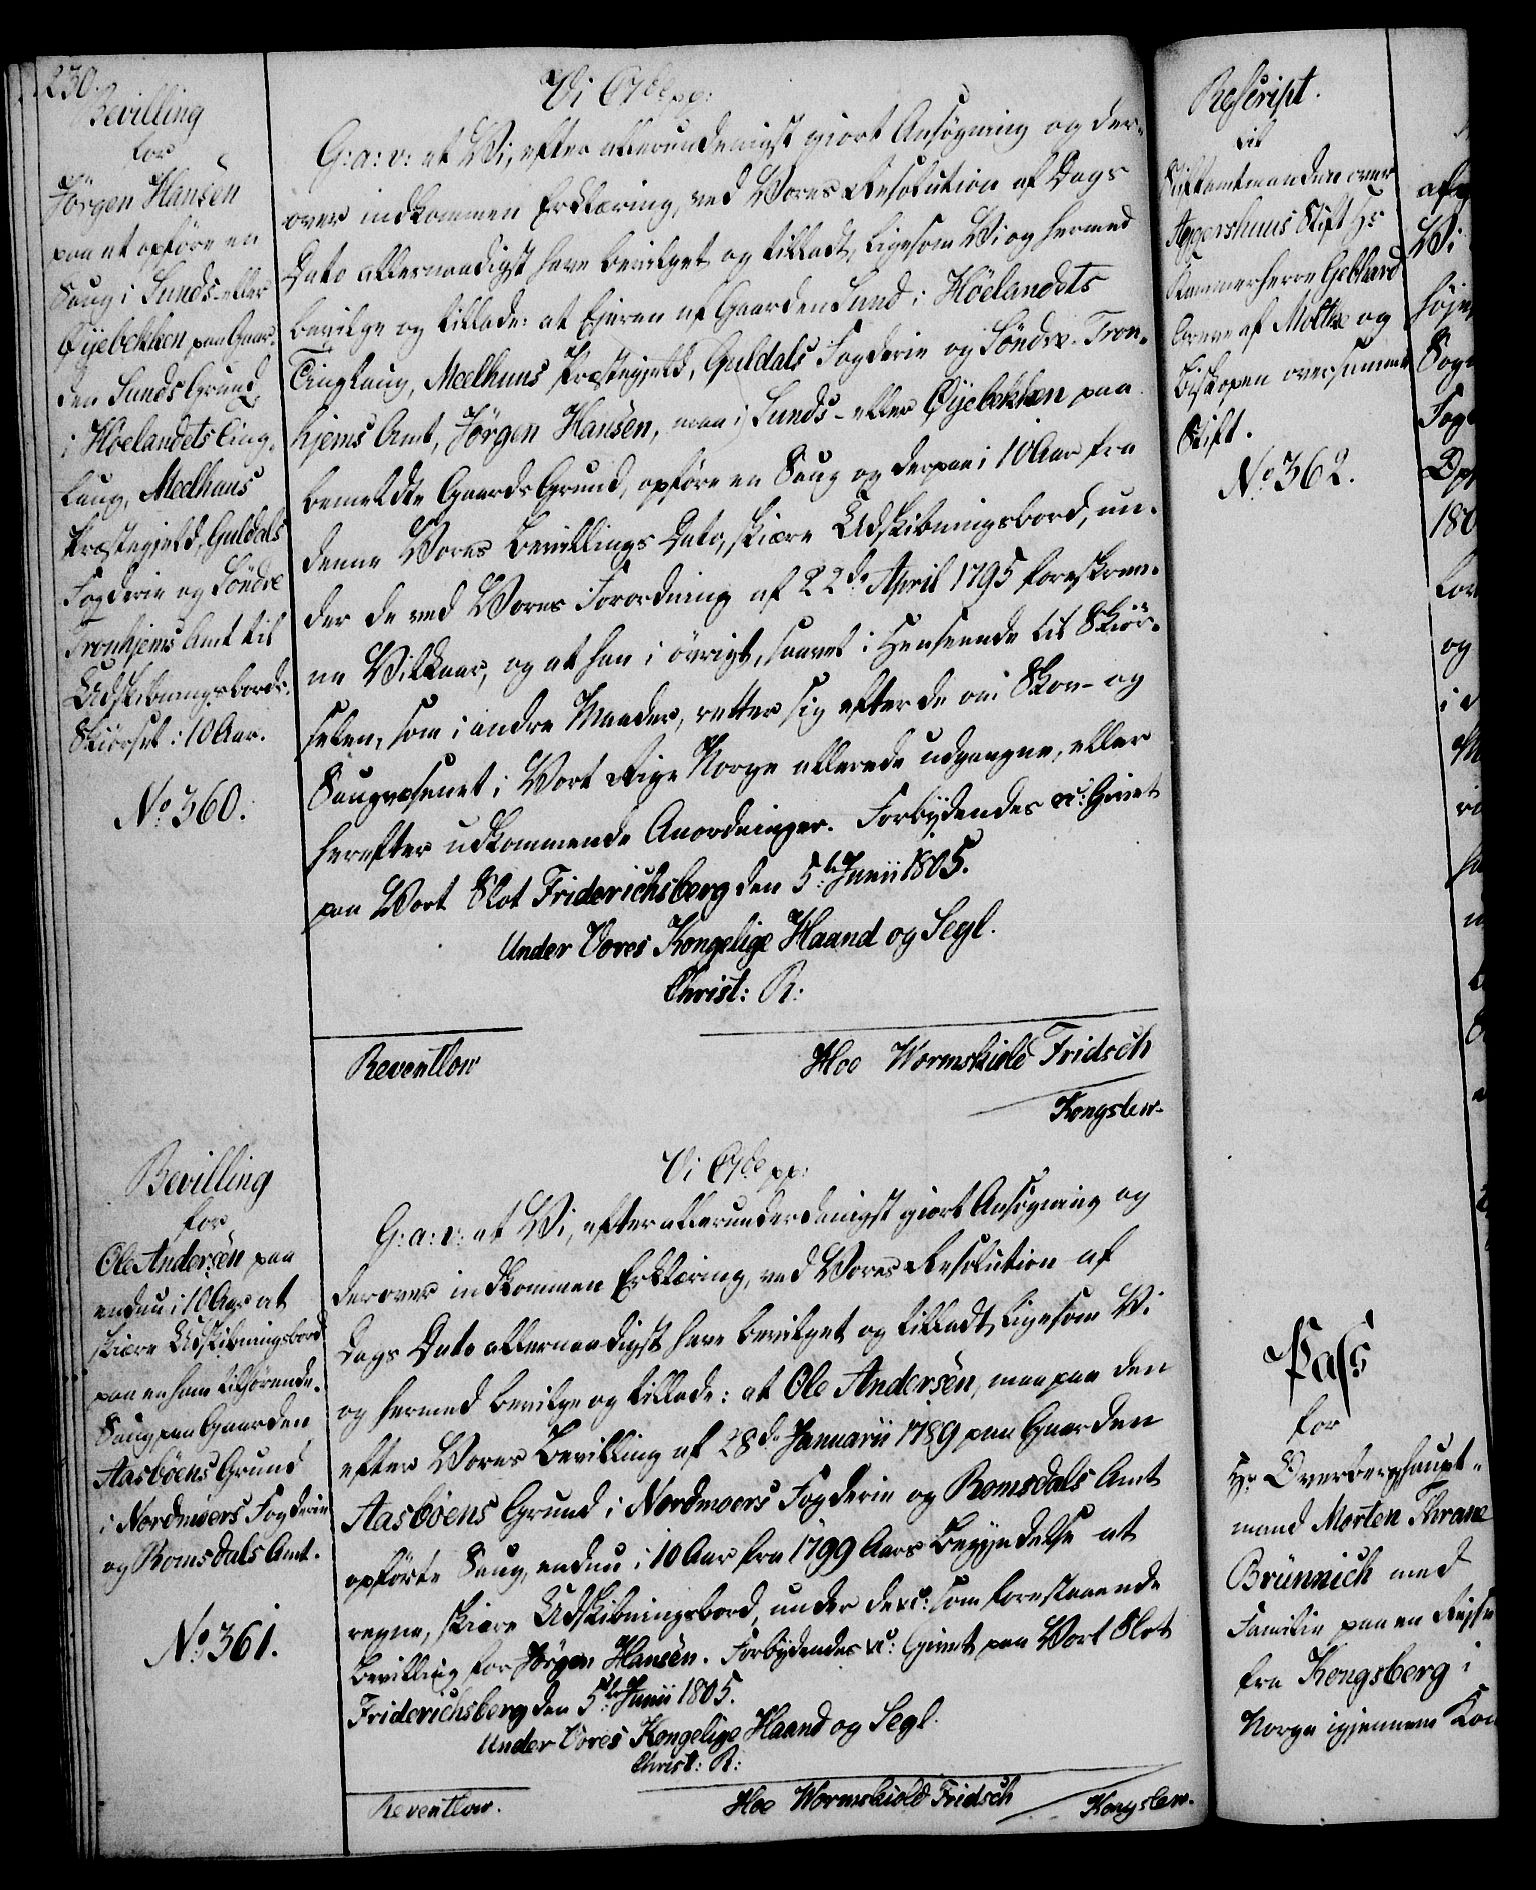 230.
Bevilling
for
Jörgen Hansen
paa at opföre en
Saug i Sunds- eller
Öÿebekken paa Gaar-
den Sunds Grund,
i Höelandets Ting-
laug, Meelhuus
Præstegjeld, Guldals
Fogderie og Söndre
Tronhjems Amt til
Udskibningsbords-
Skiørsel i 10 Aar.
No 360.
Vi C7de pp:
G: a: v: at Vi, efter allerunderdanigst giort Ansøgning og der-
over indkommen Erklæring, ved Vores Resolution af Dags
Dato allernaadigst have bevilget og tilladt, ligesom Vi og hermed
bevilge og tillade: at Ejeren af Gaarden Sund i Höelandets
Tinglaug, Meelhuus Præstegjeld, Guldals Fogderie og Söndre Tron-
hjems Amt, Jörgen Hansen, maa i Sunds- eller Öÿebekken paa
bemeldte Gaards Grund, opføre en Saug og derpaa i 10 Aar fra
denne Vores Bevillings Dato, skiære Udskibningsbord, un-
der de ved Vores Forordning af 22de April 1795 foreskrev-
ne Vilkaar, og at han i øvrigt, saavel i Henseende til Skiør-
selen, som i andre Maader, retter sig efter de om Skov- og
Saugvæsenet i Vort Rige Norge allerede udgangne, eller
herefter udkommende Anordninger. Forbÿdendes &c: Givet
paa Vort Slot Friderichsberg den 5te Junii 1805.
Under Vores Kongelige Haand og Segl.
Christ: R:
Reventlow
Hoe Wormskiold Fridsch
Kongslew.
Bevilling
for
Ole Andersen paa
endnu i 10 Aar at
skiære Udskibningsbord
paa en ham tilhørende
Saug paa Gaarden
Aasböens Grund
i Nordmöers Fogderie
og Romsdals Amt.
No 361.
Vi C7de pp:
G: a: v: at Vi, efter allerunderdanigst giort Ansøgning og
derover indkommen Erklæring, ved Vores Resolution af
Dags Dato allernaadigst have bevilget og tilladt, ligesom Vi
og hermed bevilge og tillade: at Ole Andersen, maa paa den
efter Vores Bevilling af 28de Januarii 1789 paa Gaarden
Aasböens Grund i Nordmoers Fogderie og Romsdals Amt
opførte Saug, endnu i 10 Aar fra 1799 Aars Begyndelse at
regne, skiære Udskibningsbord, under de &c: som forestaaende
Bevilling for Jörgen Hansen. Forbÿdendes &c: Givet paa Vort Slot
Friderichsberg den 5te Junii 1805.
Under Vores Kongelige Haand og Segl.
Christ: R:
Reventlow.
Hoe Wormskiold Fridsch
Kongslew.
Rescript.
til
Stiftamtmanden over
Aggershuus Stift Hr
Kammerherre Gebhard
Greve af Moltke og
Biskopen over samme
Stift.
No 362.
Pass
for
Hr Overberghaupt-
mand Morten Thrane
Brünnich med
Familie paa en Rejse
fra Kongsberg i
Norge igjennem